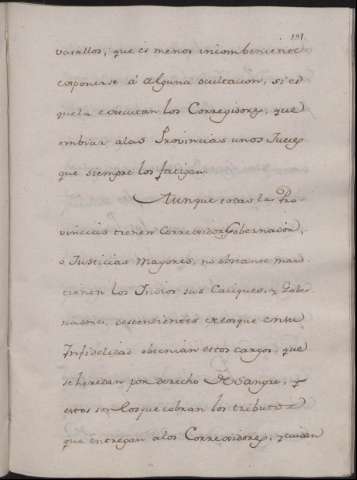 191.
vasallos, que es menos incombeniente
exponerse á alguna ocultacion, si es
que la executan los Corregidores, que
embiar alas Provincias unos Jueces
que siempre los fatigan.
Aunque todas las Pro-
vincias tienen Corregidor Gobernador,
ó Justicias Mayores, no obstante man-
tienen los Indios sus Caciques, y Gober-
nadores, descendientes delos que en su
Infidelidad obtenian estos cargos, que
se heredan por derecho de sangre, y
estos son los que cobran los tributos
que entregan alos Corregidores, y cuidan